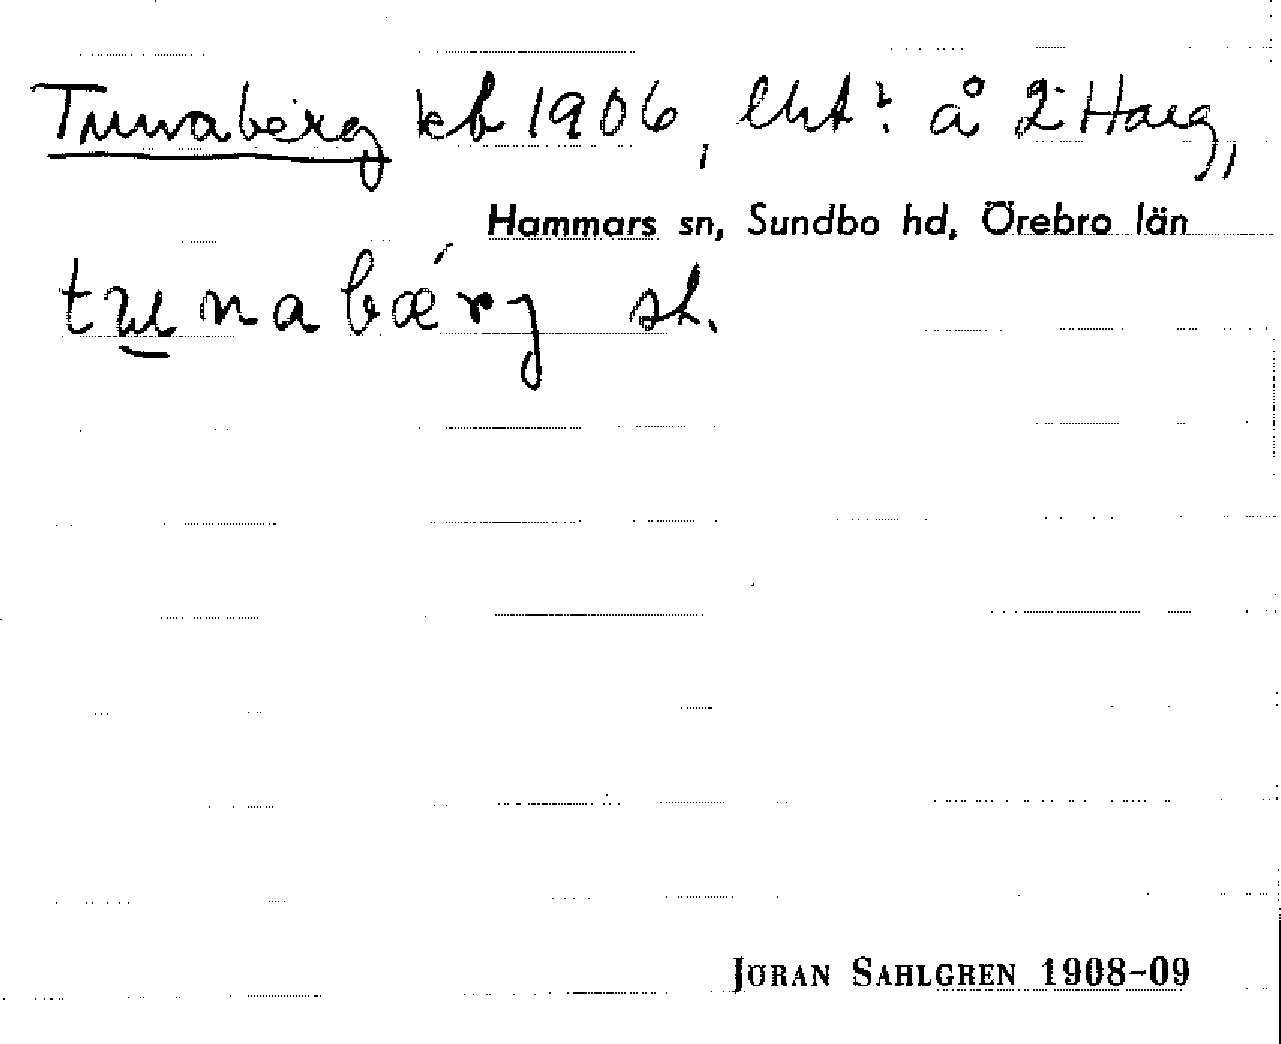 Tunaberg kb 1906, lht? å 2 Harg,
Hammars sn, Sundbo hd, Örebro län
tʉnabǽrj sk.
JÖRAN SAHLGREN 1908-09